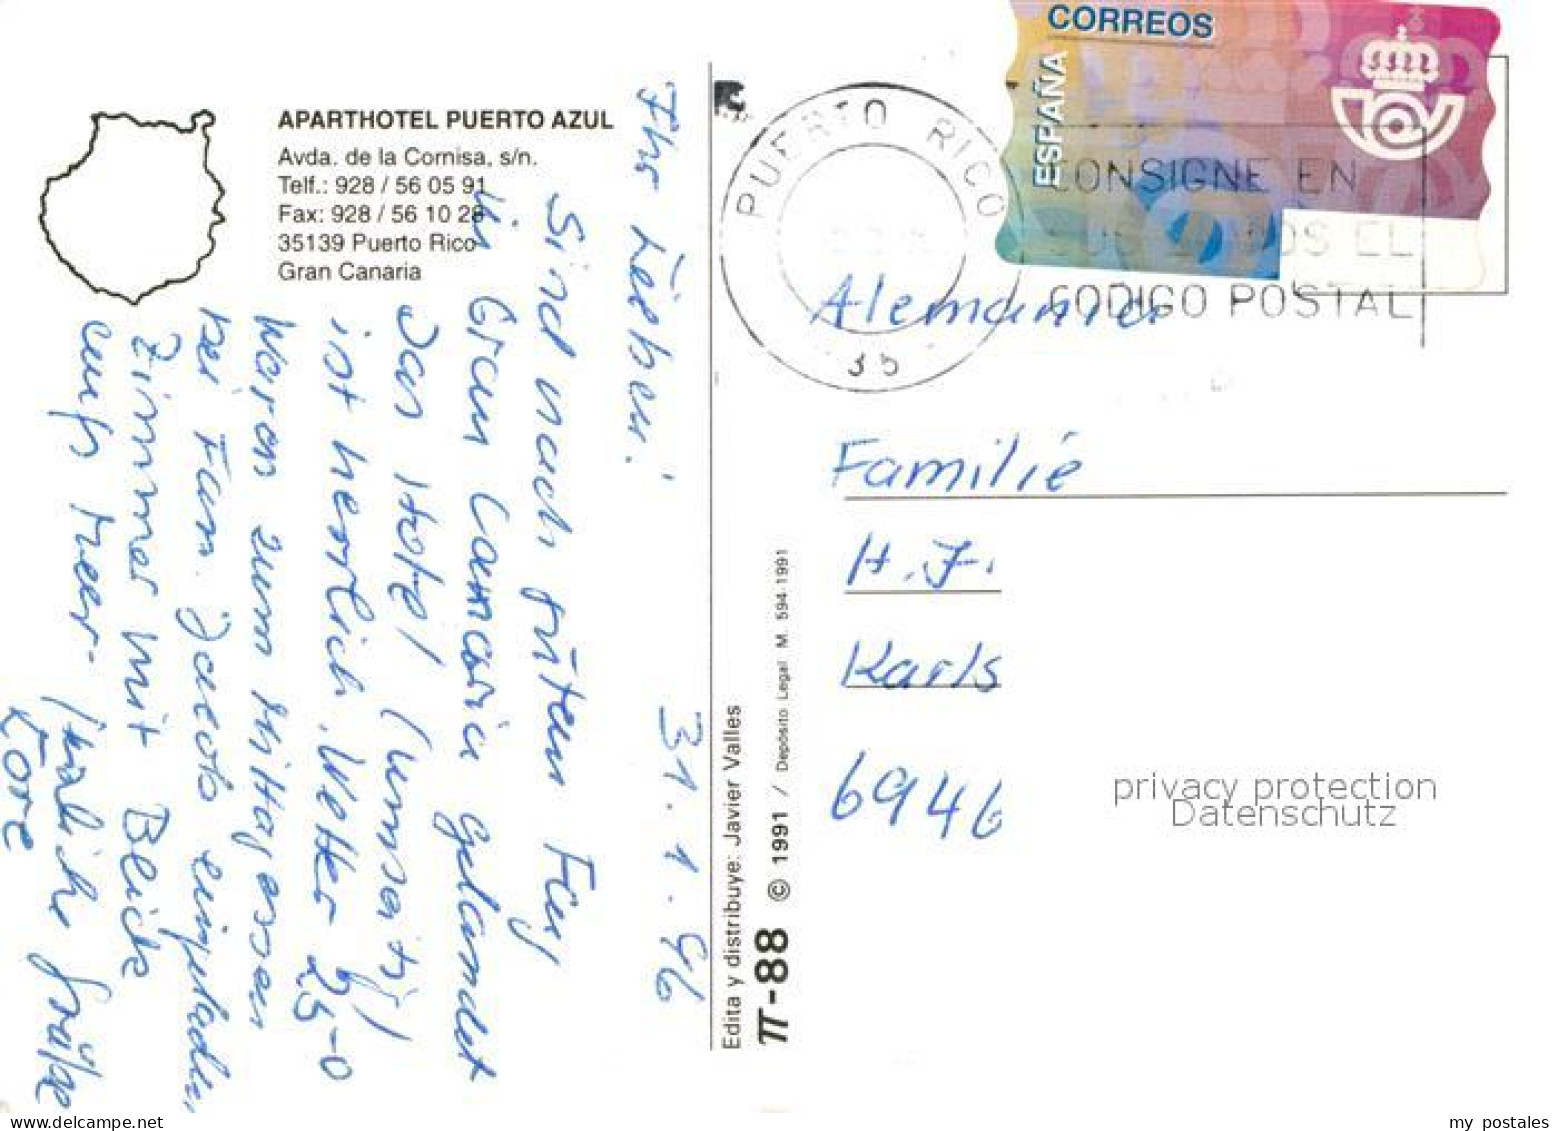 APARTHOTEL PUERTO AZUL
Avda. de la Cornisa, s/n.
Telf.: 928 / 56 05 91
Fax: 928 / 56 10 28
35139 Puerto Rico
Gran Canaria
31.1.96
Ihr Lieben!
Sind nach gutem Flug
in Gran Canaria gelandet
Das Hotel
ist herrlich, Wetter 25-0
Waren zum Mittagessen
bei Fam. Jacobs eingeladen,
Zimmer mit Blick
aufs Meer.
Herzliche Grüße
Lore
Edita y distribuye: Javier Valles
π-88 © 1991 / Depósito Legal M. 594-1991
CORREOS
ESPAÑA
PUERTO RICO
35
CONSIGNE EN
EL
CODIGO POSTAL
Alemania
Familie
H. J.
Karls
6946
privacy protection
Datenschutz
my postales